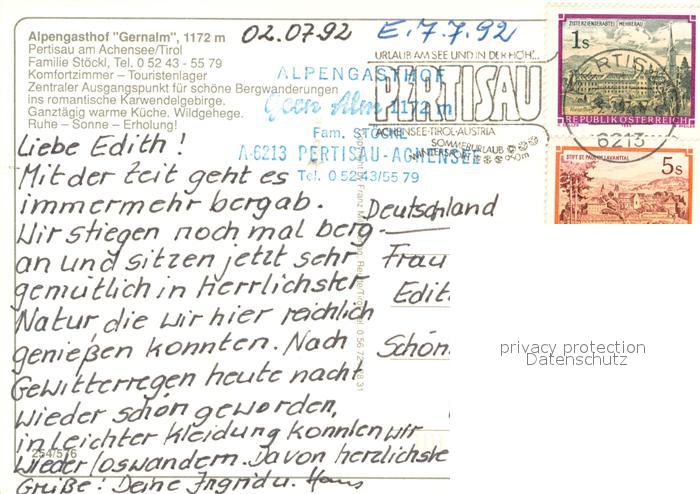 Alpengasthof "Gernalm", 1172 m
Pertisau am Achensee/Tirol
Familie Stöckl, Tel. 0 52 43 - 55 79
Komfortzimmer – Touristenlager
Zentraler Ausgangspunkt für schöne Bergwanderungen
ins romantische Karwendelgebirge.
Ganztägig warme Küche. Wildgehege.
Ruhe – Sonne – Erholung!
02.07.92
E. 7.7.92
URLAUB AM SEE UND IN DER HÖH'...
PERTISAU
ACHENSEE-TIROL-AUSTRIA
SOMMERURLAUB
WINTERSPORT 950m
ALPENGASTHOF
Gern Alm 1172 m
Fam. STÖCKL
A-6213 PERTISAU-ACHENSEE
Tel. 0 52 43/55 79
ZISTERZIENSERABTEI MEHRERAU
1s
REPUBLIK ÖSTERREICH
PERTISAU
6213
STIFT ST. PAUL IM LAVANTTAL
5s
Liebe Edith!
Mit der Zeit geht es
immermehr bergab.
Wir stiegen noch mal berg-
an und sitzen jetzt sehr
gemütlich in herrlichster
Natur die wir hier reichlich
genießen konnten. Nach
Gewitterregen heute nacht
wieder schön geworden,
in leichter Kleidung konnten wir
wieder loswandern. Davon herzlichste
Grüße! Deine Ingrid u. Hans
Deutschland
Frau
Edit
Schön
254/576
privacy protection
Datenschutz